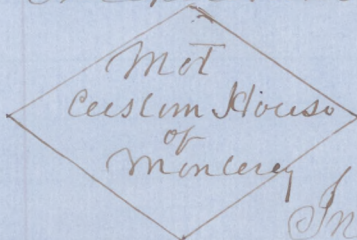 Mot
Custom House
of
Monterey
In